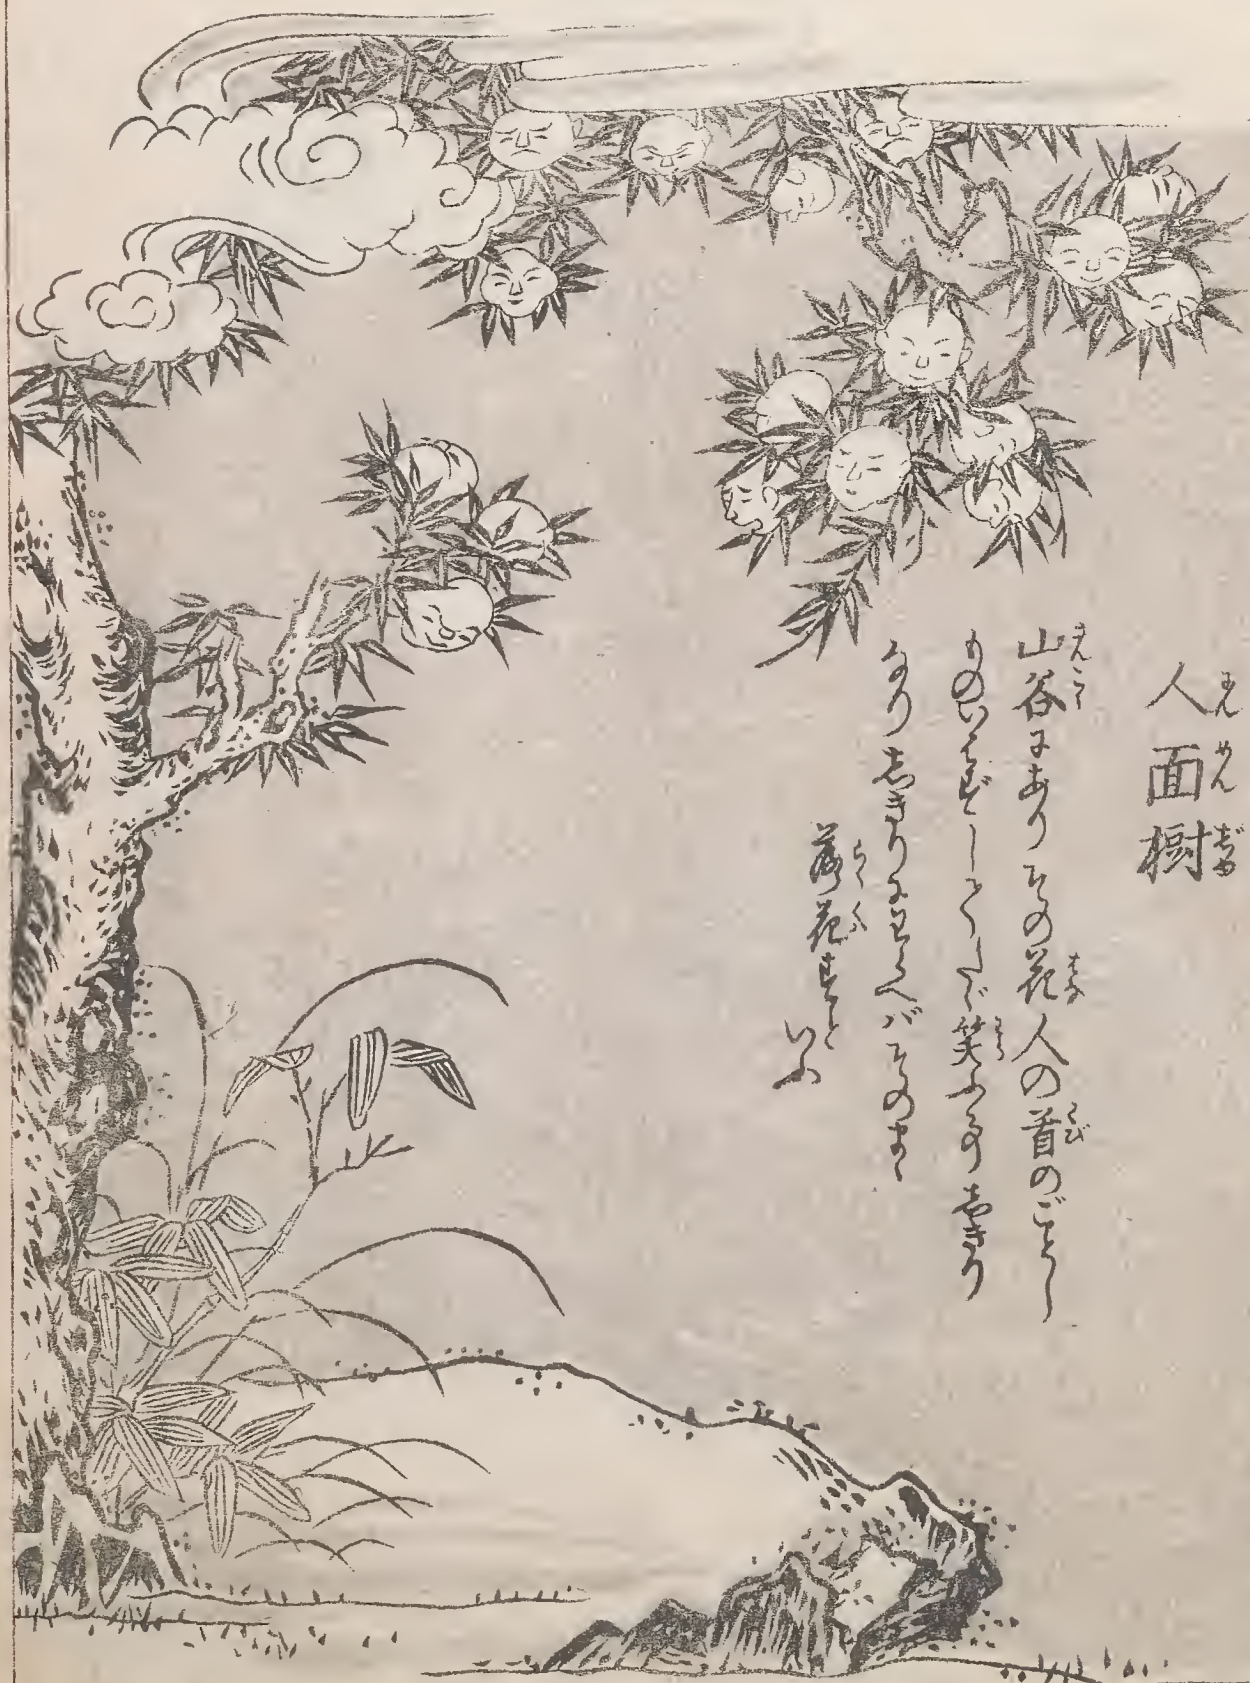 人面樹
にんめんじゆ
山谷にありその花人の首のごとし
ものいはずしてたゞ笑ふ事しきり
なりしきりにわらへバそのまゝ
落花すと
いふ